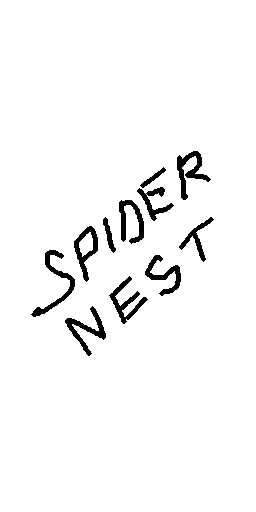 SPIDER
NEST